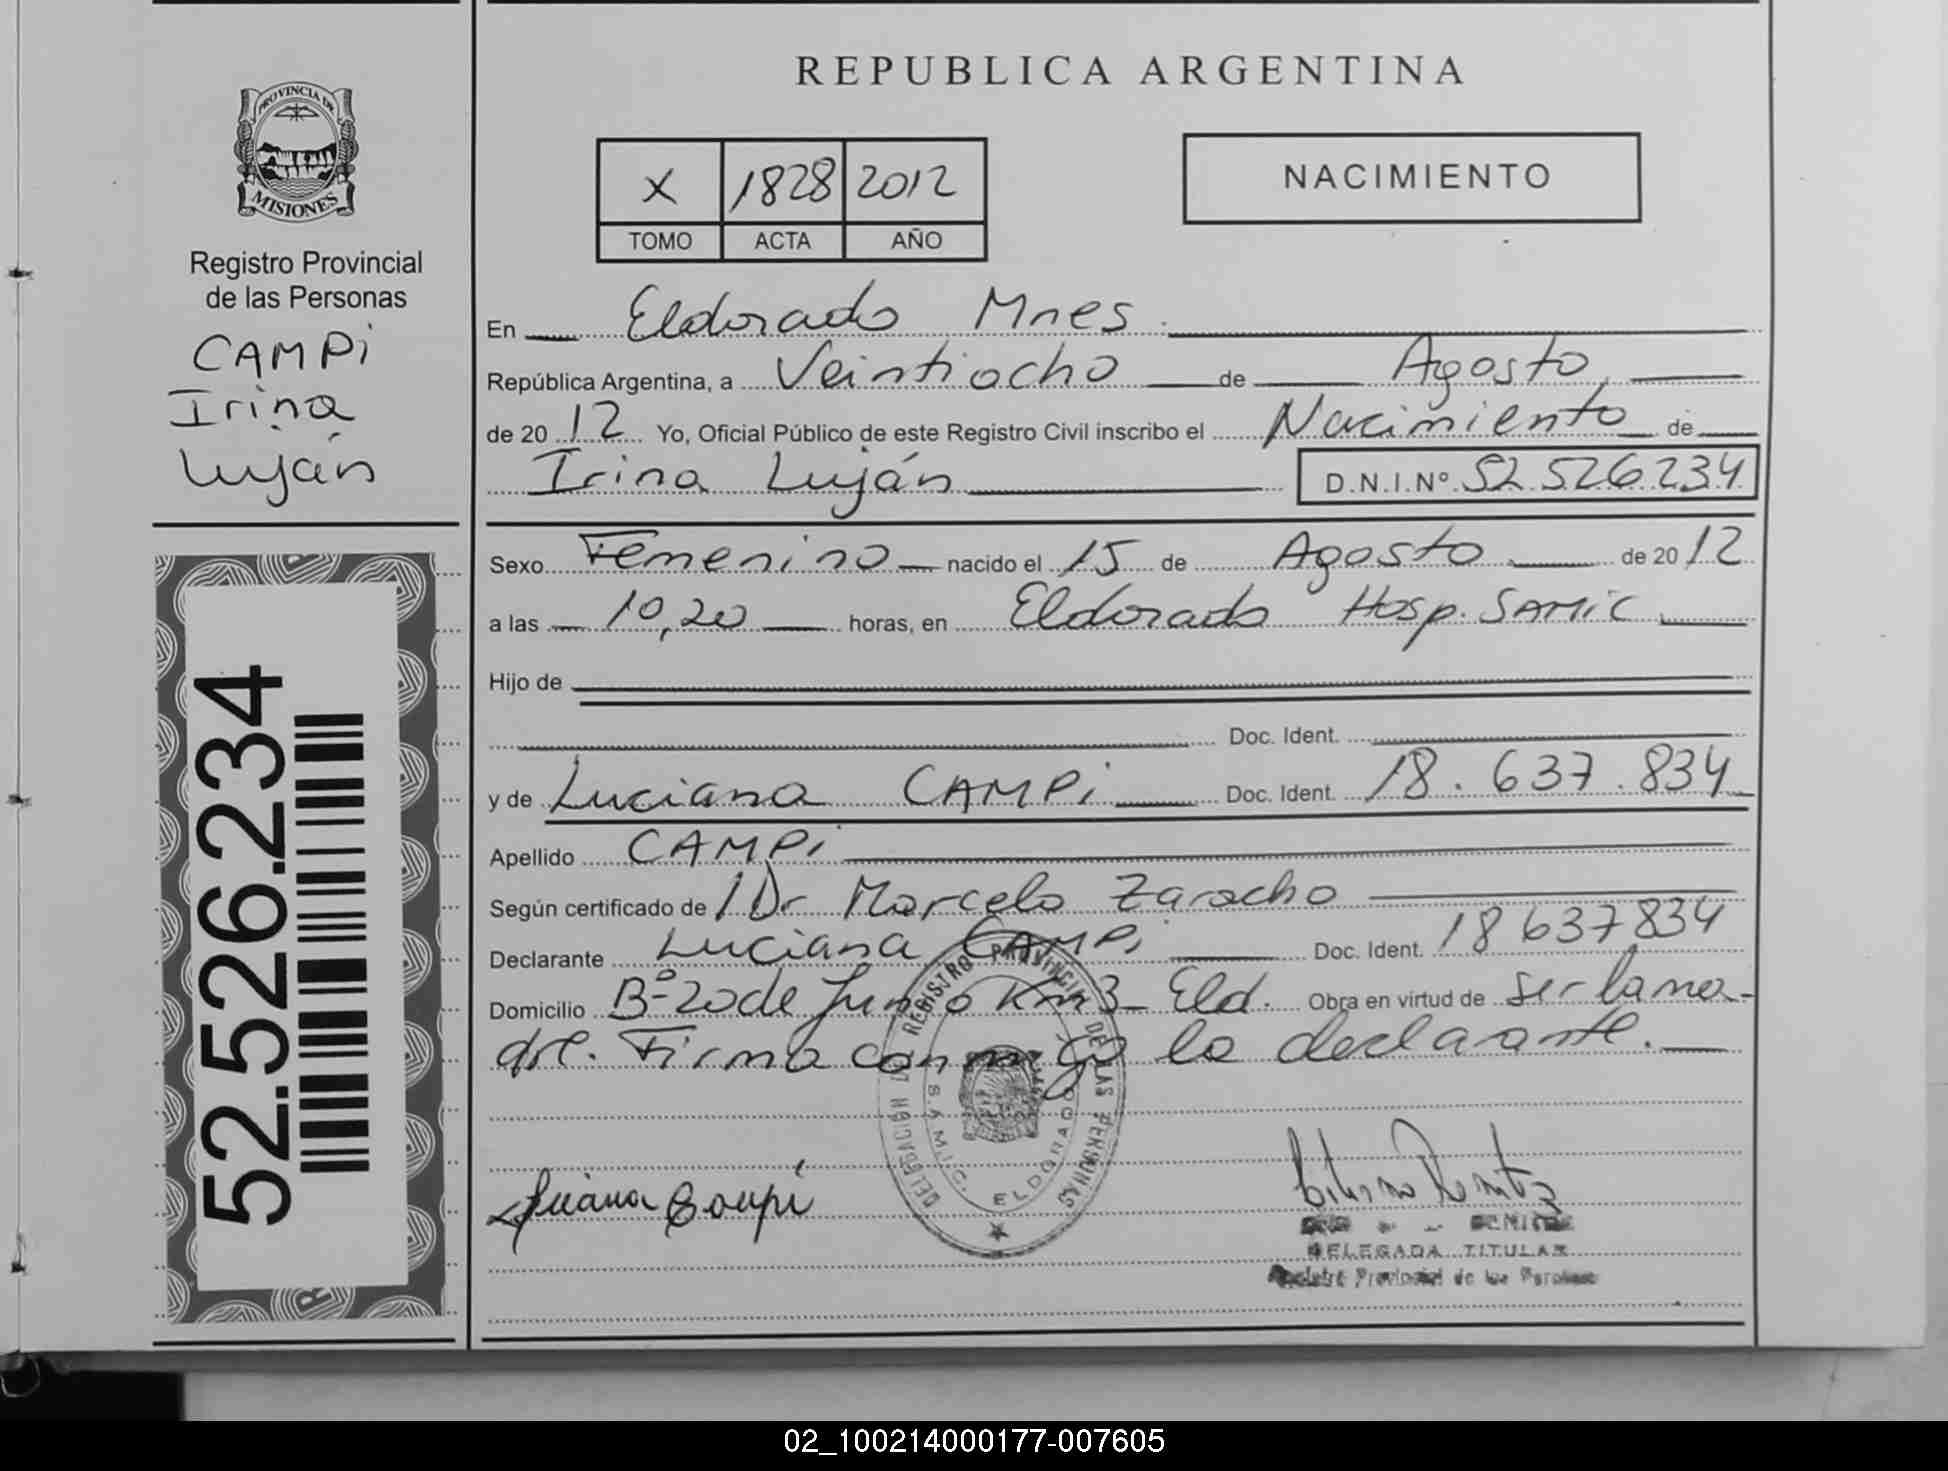 PROVINCIA DE
MISIONES
Registro Provincial
de las Personas
CAMPi
Irina
Luján
52.526.234
REPUBLICA ARGENTINA
X 1828 2012
TOMO ACTA AÑO
NACIMIENTO
En Eldorado Mnes.
República Argentina, a Veintiocho de Agosto
de 20 12 Yo, Oficial Público de este Registro Civil inscribo el Nacimiento de
Irina Luján D.N.I.Nº 52.526.234
Sexo Femenino nacido el 15 de Agosto de 20 12
a las 10,20 horas, en Eldorado Hosp. SAMiC
Hijo de
Doc. Ident.
y de Luciana CAMPi Doc. Ident. 18.637.834
Apellido CAMPi
Según certificado de Dr Marcelo Zaracho
Declarante Luciana CAMPi Doc. Ident. 18637834
Domicilio Bº 20 de Junio Km 3 Eld. Obra en virtud de ser la ma-
dre. Firma conmigo la declarante.
DELEGACIÓN DEL REGISTRO PROVINCIAL DE LAS PERSONAS
S.A.M.I.C. ELDORADO
Luciana Campi
BENITEZ
DELEGADA TITULAR
Registro Provincial de las Personas
02_100214000177-007605